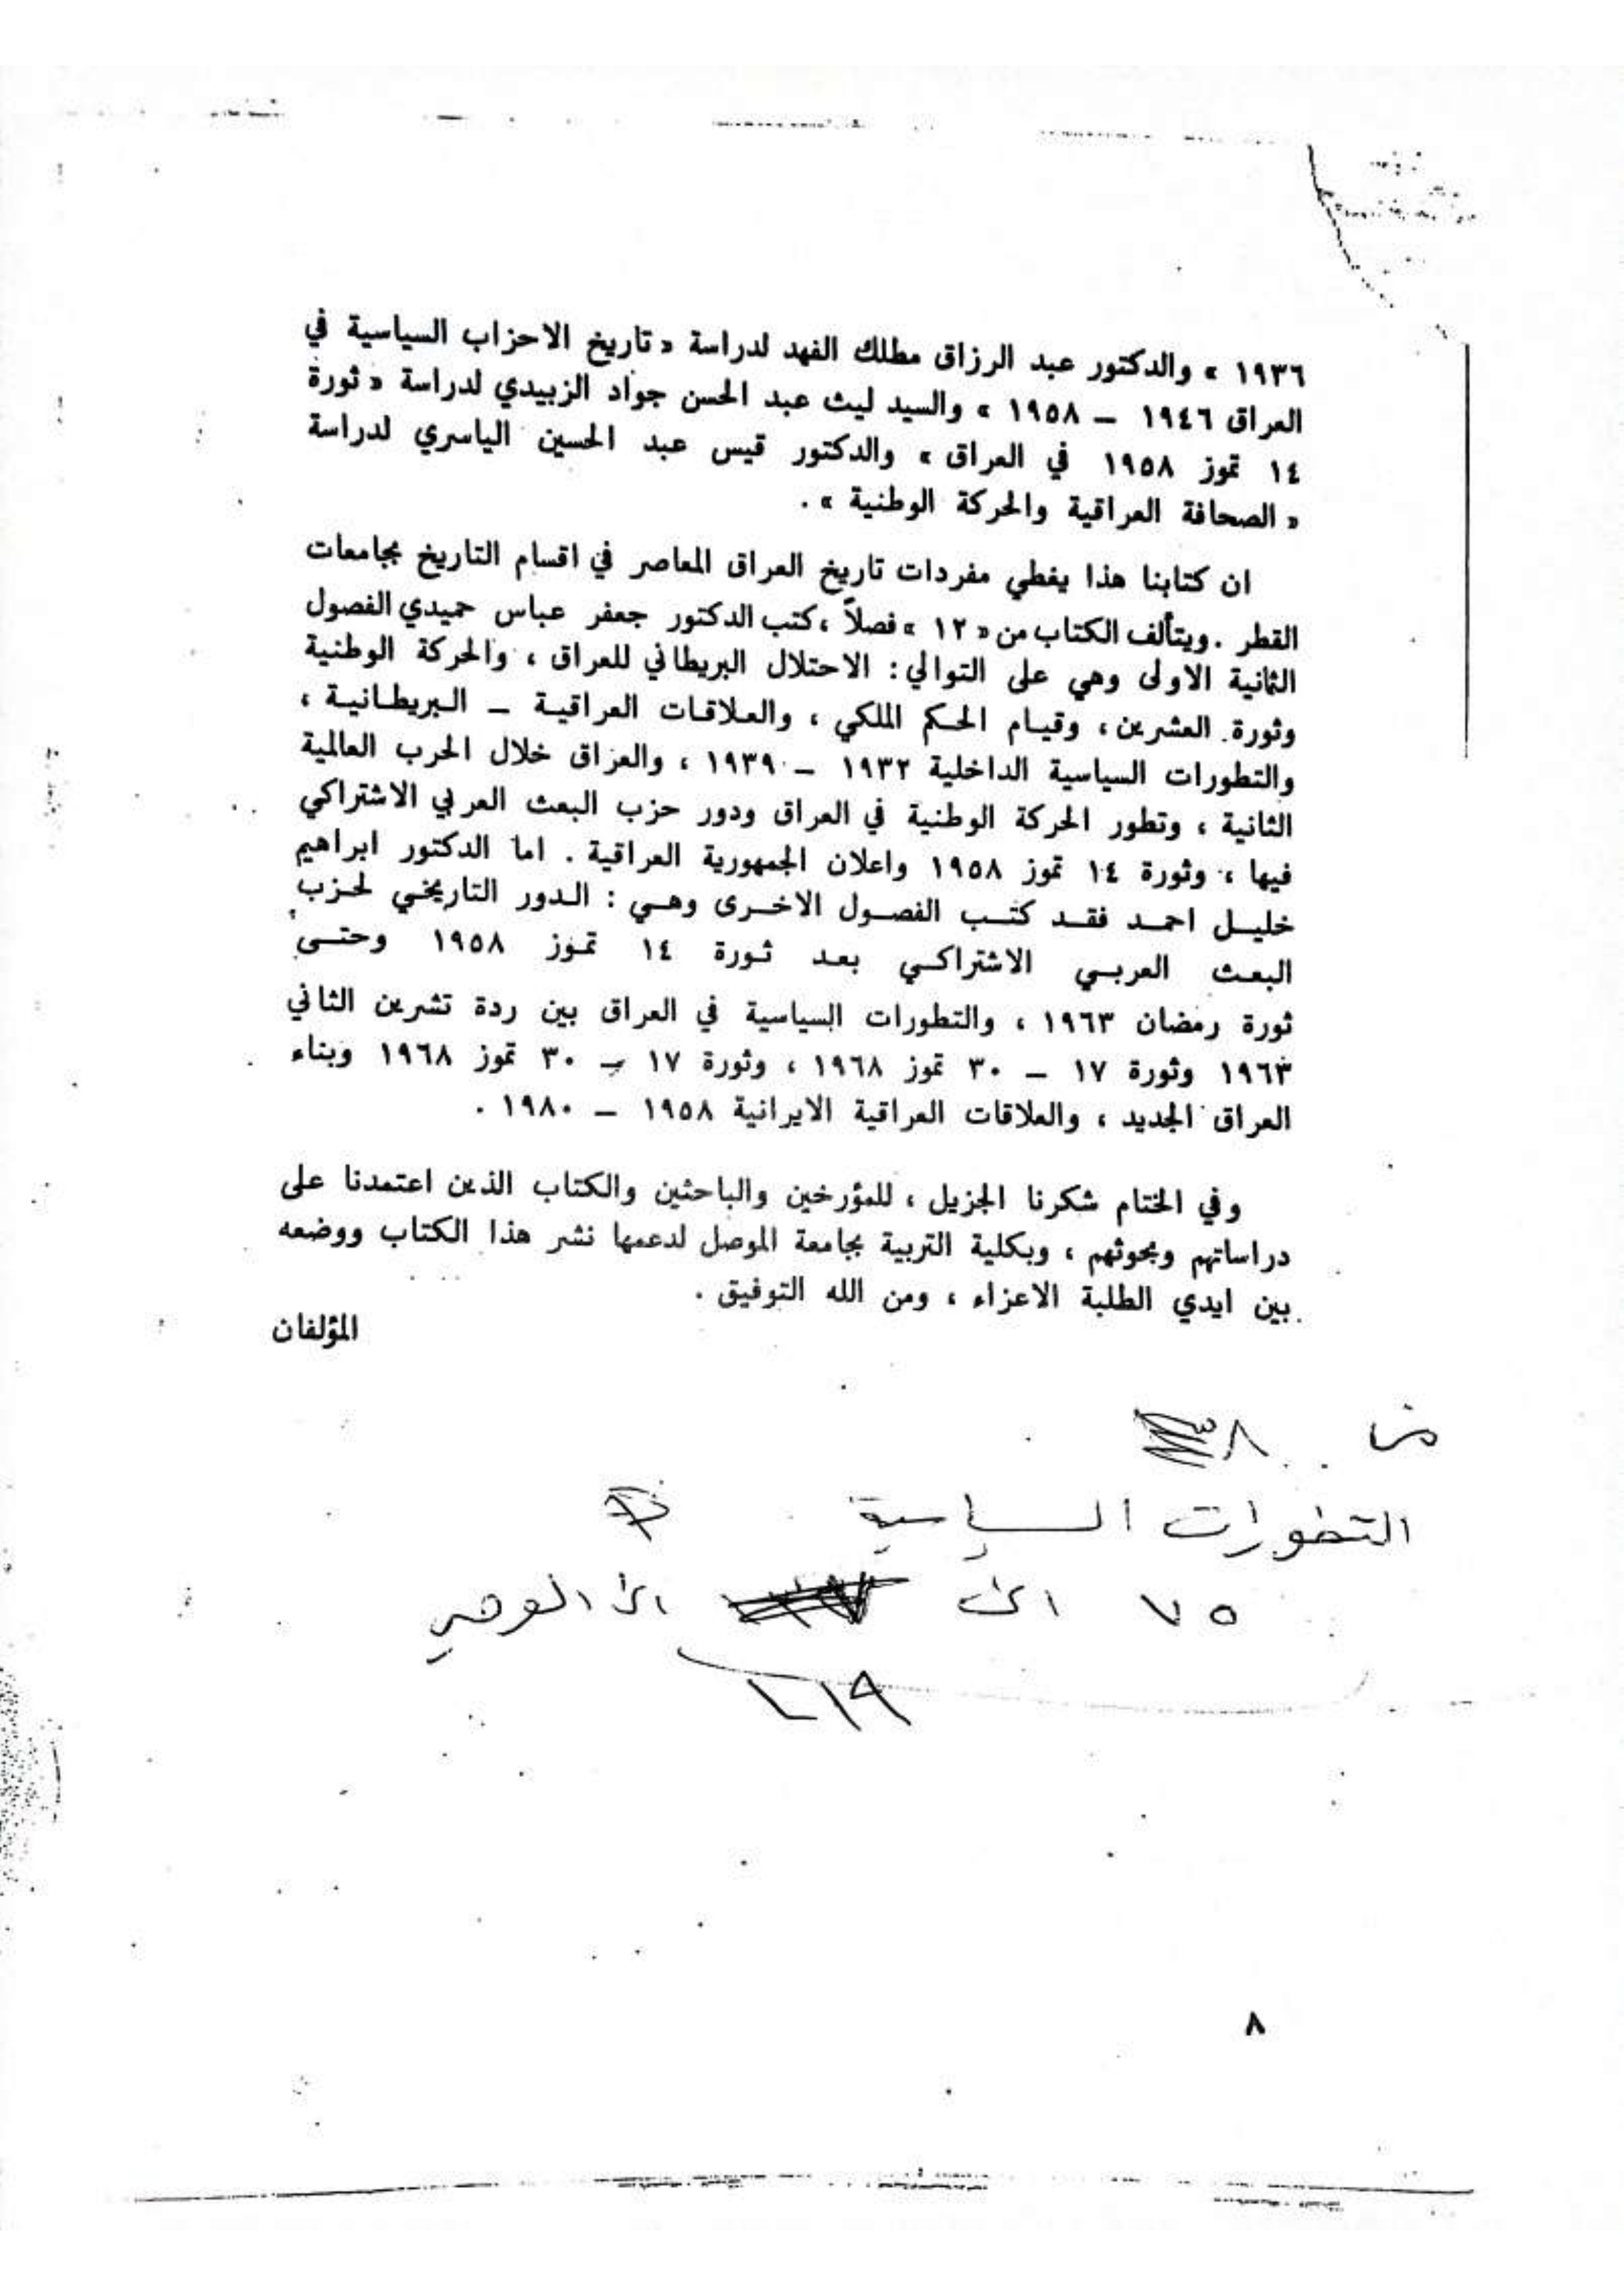 ١٩٣٦ » والدكتور عبد الرزاق مطلك الفهد لدراسة « تاريخ الاحزاب السياسية في
العراق ١٩٤٦ – ١٩٥٨ » والسيد ليث عبد الحسن جواد الزبيدي لدراسة « ثورة
١٤ تموز ١٩٥٨ في العراق » والدكتور قيس عبد الحسين الياسري لدراسة
« الصحافة العراقية والحركة الوطنية » .
ان كتابنا هذا يغطي مفردات تاريخ العراق المعاصر في اقسام التاريخ بجامعات
القطر . ويتألف الكتاب من « ١٢ » فصلاً ، كتب الدكتور جعفر عباس حميدي الفصول
الثانية الاولى وهي على التوالي : الاحتلال البريطاني للعراق ، والحركة الوطنية
وثورة العشرين ، وقيام الحكم الملكي ، والعلاقات العراقية – البريطانية ،
والتطورات السياسية الداخلية ١٩٣٢ – ١٩٣٩ ، والعراق خلال الحرب العالمية
الثانية ، وتطور الحركة الوطنية في العراق ودور حزب البعث العربي الاشتراكي
فيها ، وثورة ١٤ تموز ١٩٥٨ واعلان الجمهورية العراقية . اما الدكتور ابراهيم
خليل احمد فقد كتب الفصول الاخرى وهي : الدور التاريخي لحزب
البعث العربي الاشتراكي بعد ثورة ١٤ تموز ١٩٥٨ وحتى
ثورة رمضان ١٩٦٣ ، والتطورات السياسية في العراق بين ردة تشرين الثاني
١٩٦٣ وثورة ١٧ – ٣٠ تموز ١٩٦٨ ، وثورة ١٧ – ٣٠ تموز ١٩٦٨ وبناء
العراق الجديد ، والعلاقات العراقية الايرانية ١٩٥٨ – ١٩٨٠ .
وفي الختام شكرنا الجزيل ، للمؤرخين والباحثين والكتاب الذين اعتمدنا على
دراساتهم وبحوثهم ، وبكلية التربية بجامعة الموصل لدعمها نشر هذا الكتاب ووضعه
بين ايدي الطلبة الاعزاء ، ومن الله التوفيق .
المؤلفان
من
التطورات السياسية
٧٥ الى الى
٨